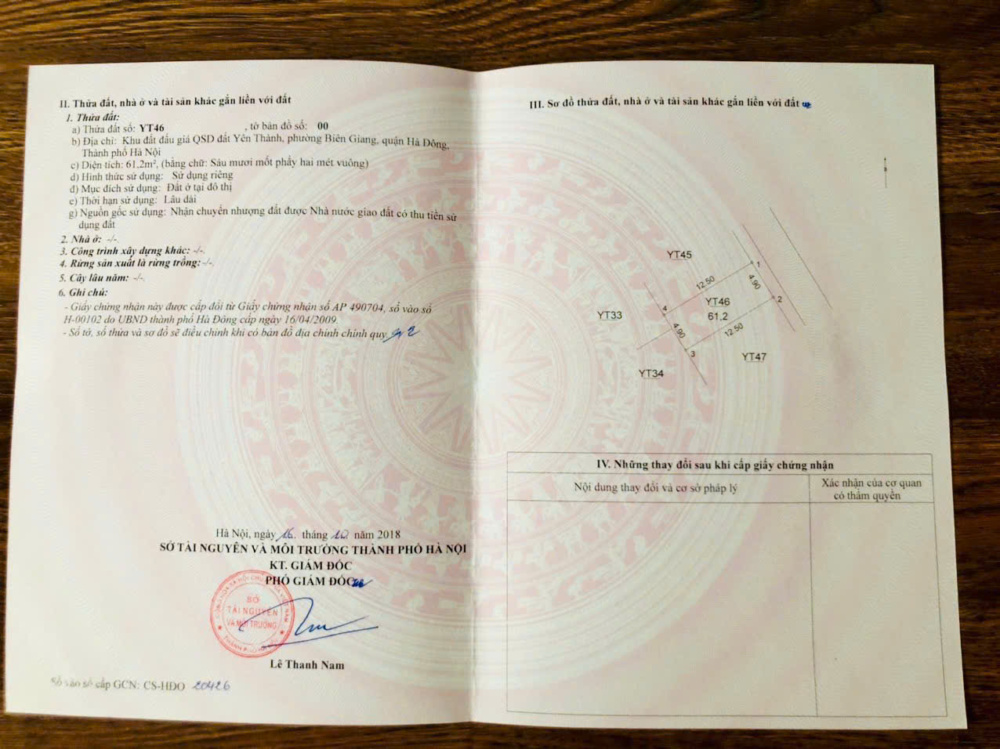 II. Thửa đất, nhà ở và tài sản khác gắn liền với đất
1. Thửa đất:
a) Thửa đất số: YT46 , tờ bản đồ số: 00
b) Địa chỉ: Khu đất đấu giá QSD đất Yên Thành, phường Biên Giang, quận Hà Đông,
Thành phố Hà Nội
c) Diện tích: 61.2m², (bằng chữ: Sáu mươi mốt phẩy hai mét vuông)
d) Hình thức sử dụng: Sử dụng riêng
đ) Mục đích sử dụng: Đất ở tại đô thị
e) Thời hạn sử dụng: Lâu dài
g) Nguồn gốc sử dụng: Nhận chuyển nhượng đất được Nhà nước giao đất có thu tiền sử
dụng đất
2. Nhà ở: -/-.
3. Công trình xây dựng khác: -/-.
4. Rừng sản xuất là rừng trồng: -/-.
5. Cây lâu năm: -/-.
6. Ghi chú:
- Giấy chứng nhận này được cấp đổi từ Giấy chứng nhận số AP 490704, số vào sổ
H-00102 do UBND thành phố Hà Đông cấp ngày 16/04/2009.
- Số tờ, số thửa và sơ đồ sẽ điều chỉnh khi có bản đồ địa chính chính quy
Hà Nội, ngày 16 tháng 10 năm 2018
SỞ TÀI NGUYÊN VÀ MÔI TRƯỜNG THÀNH PHỐ HÀ NỘI
KT. GIÁM ĐỐC
PHÓ GIÁM ĐỐC
SỞ
TÀI NGUYÊN
VÀ MÔI TRƯỜNG
Lê Thanh Nam
Số vào sổ cấp GCN: CS-HĐO 20426
III. Sơ đồ thửa đất, nhà ở và tài sản khác gắn liền với đất
YT45
1
12.50
4.90
YT46
2
YT33
4
61.2
4.90
12.50
3
YT47
YT34
IV. Những thay đổi sau khi cấp giấy chứng nhận
Nội dung thay đổi và cơ sở pháp lý
Xác nhận của cơ quan
có thẩm quyền